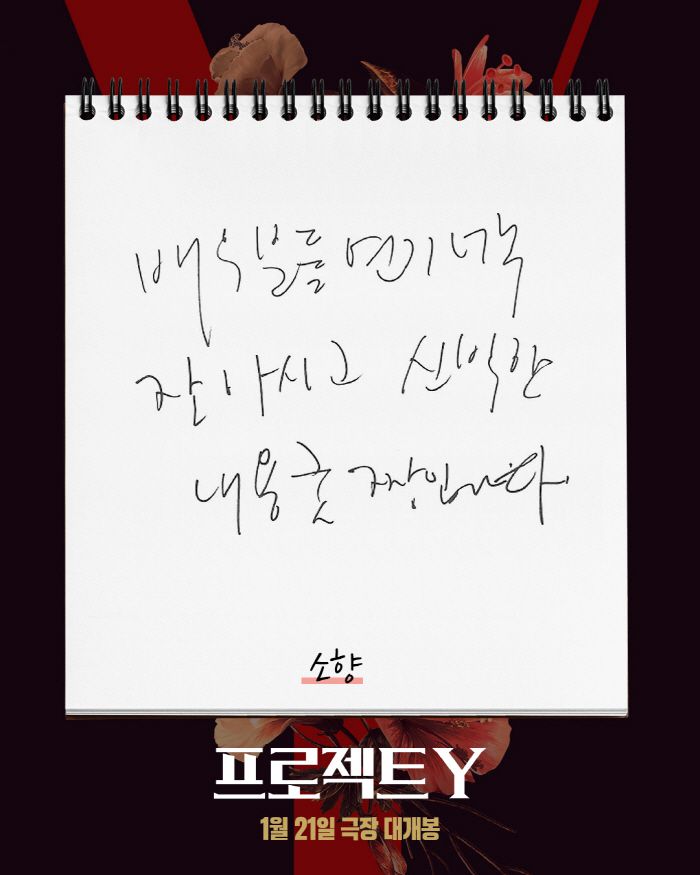 배우분들 연기 너무
잘 하시고 신박한
내용 굿 짱입니다.
소향
프로젝트 Y
1월 21일 극장 대개봉